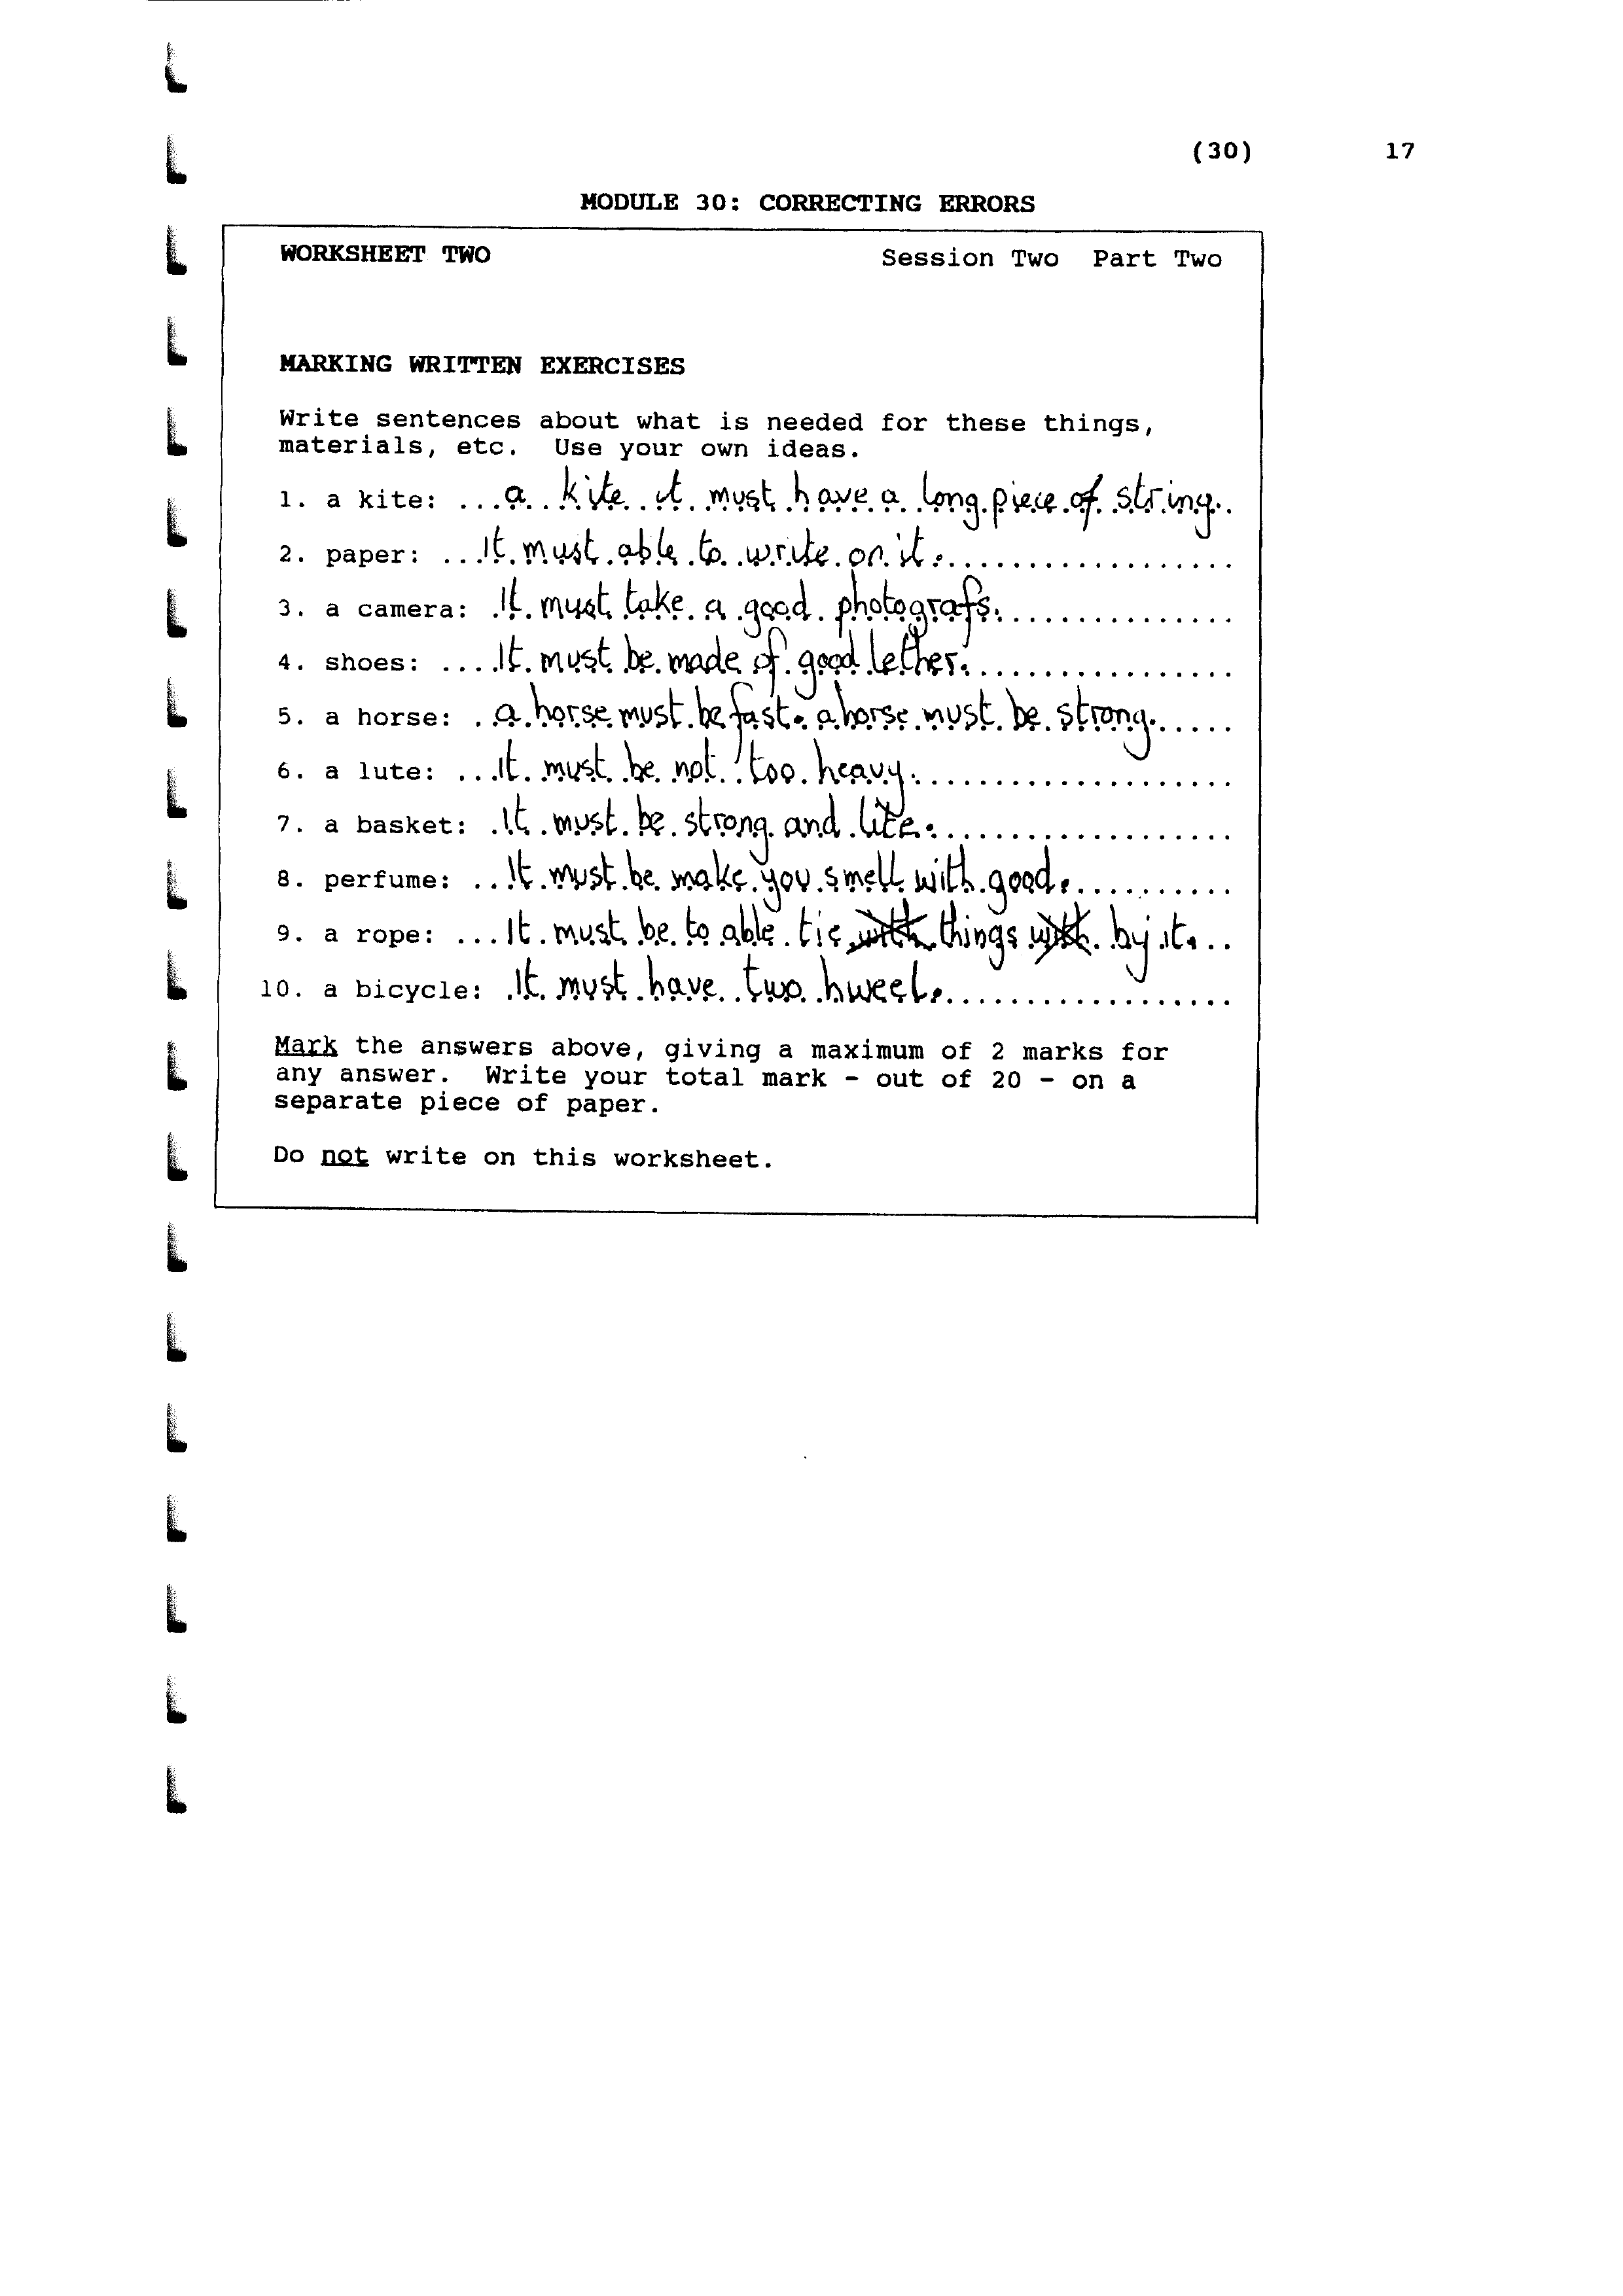 (30) 17
MODULE 30: CORRECTING ERRORS
WORKSHEET TWO Session Two Part Two
MARKING WRITTEN EXERCISES
Write sentences about what is needed for these things,
materials, etc. Use your own ideas.
1. a kite: ...a kite it must have a long piece of string..
2. paper: ...It must able to write on it...................
3. a camera: .It must take a good photografs...............
4. shoes: ....It must be made of good lether.................
5. a horse: .a horse must be fast. a horse must be strong......
6. a lute: ...it must be not too heavy.....................
7. a basket: .It must be strong and lite...................
8. perfume: ..It must be make you smell with good...........
9. a rope: ...It must be to able tie things by it...
10. a bicycle: .It must have two hweel...................
Mark the answers above, giving a maximum of 2 marks for
any answer. Write your total mark - out of 20 - on a
separate piece of paper.
Do not write on this worksheet.